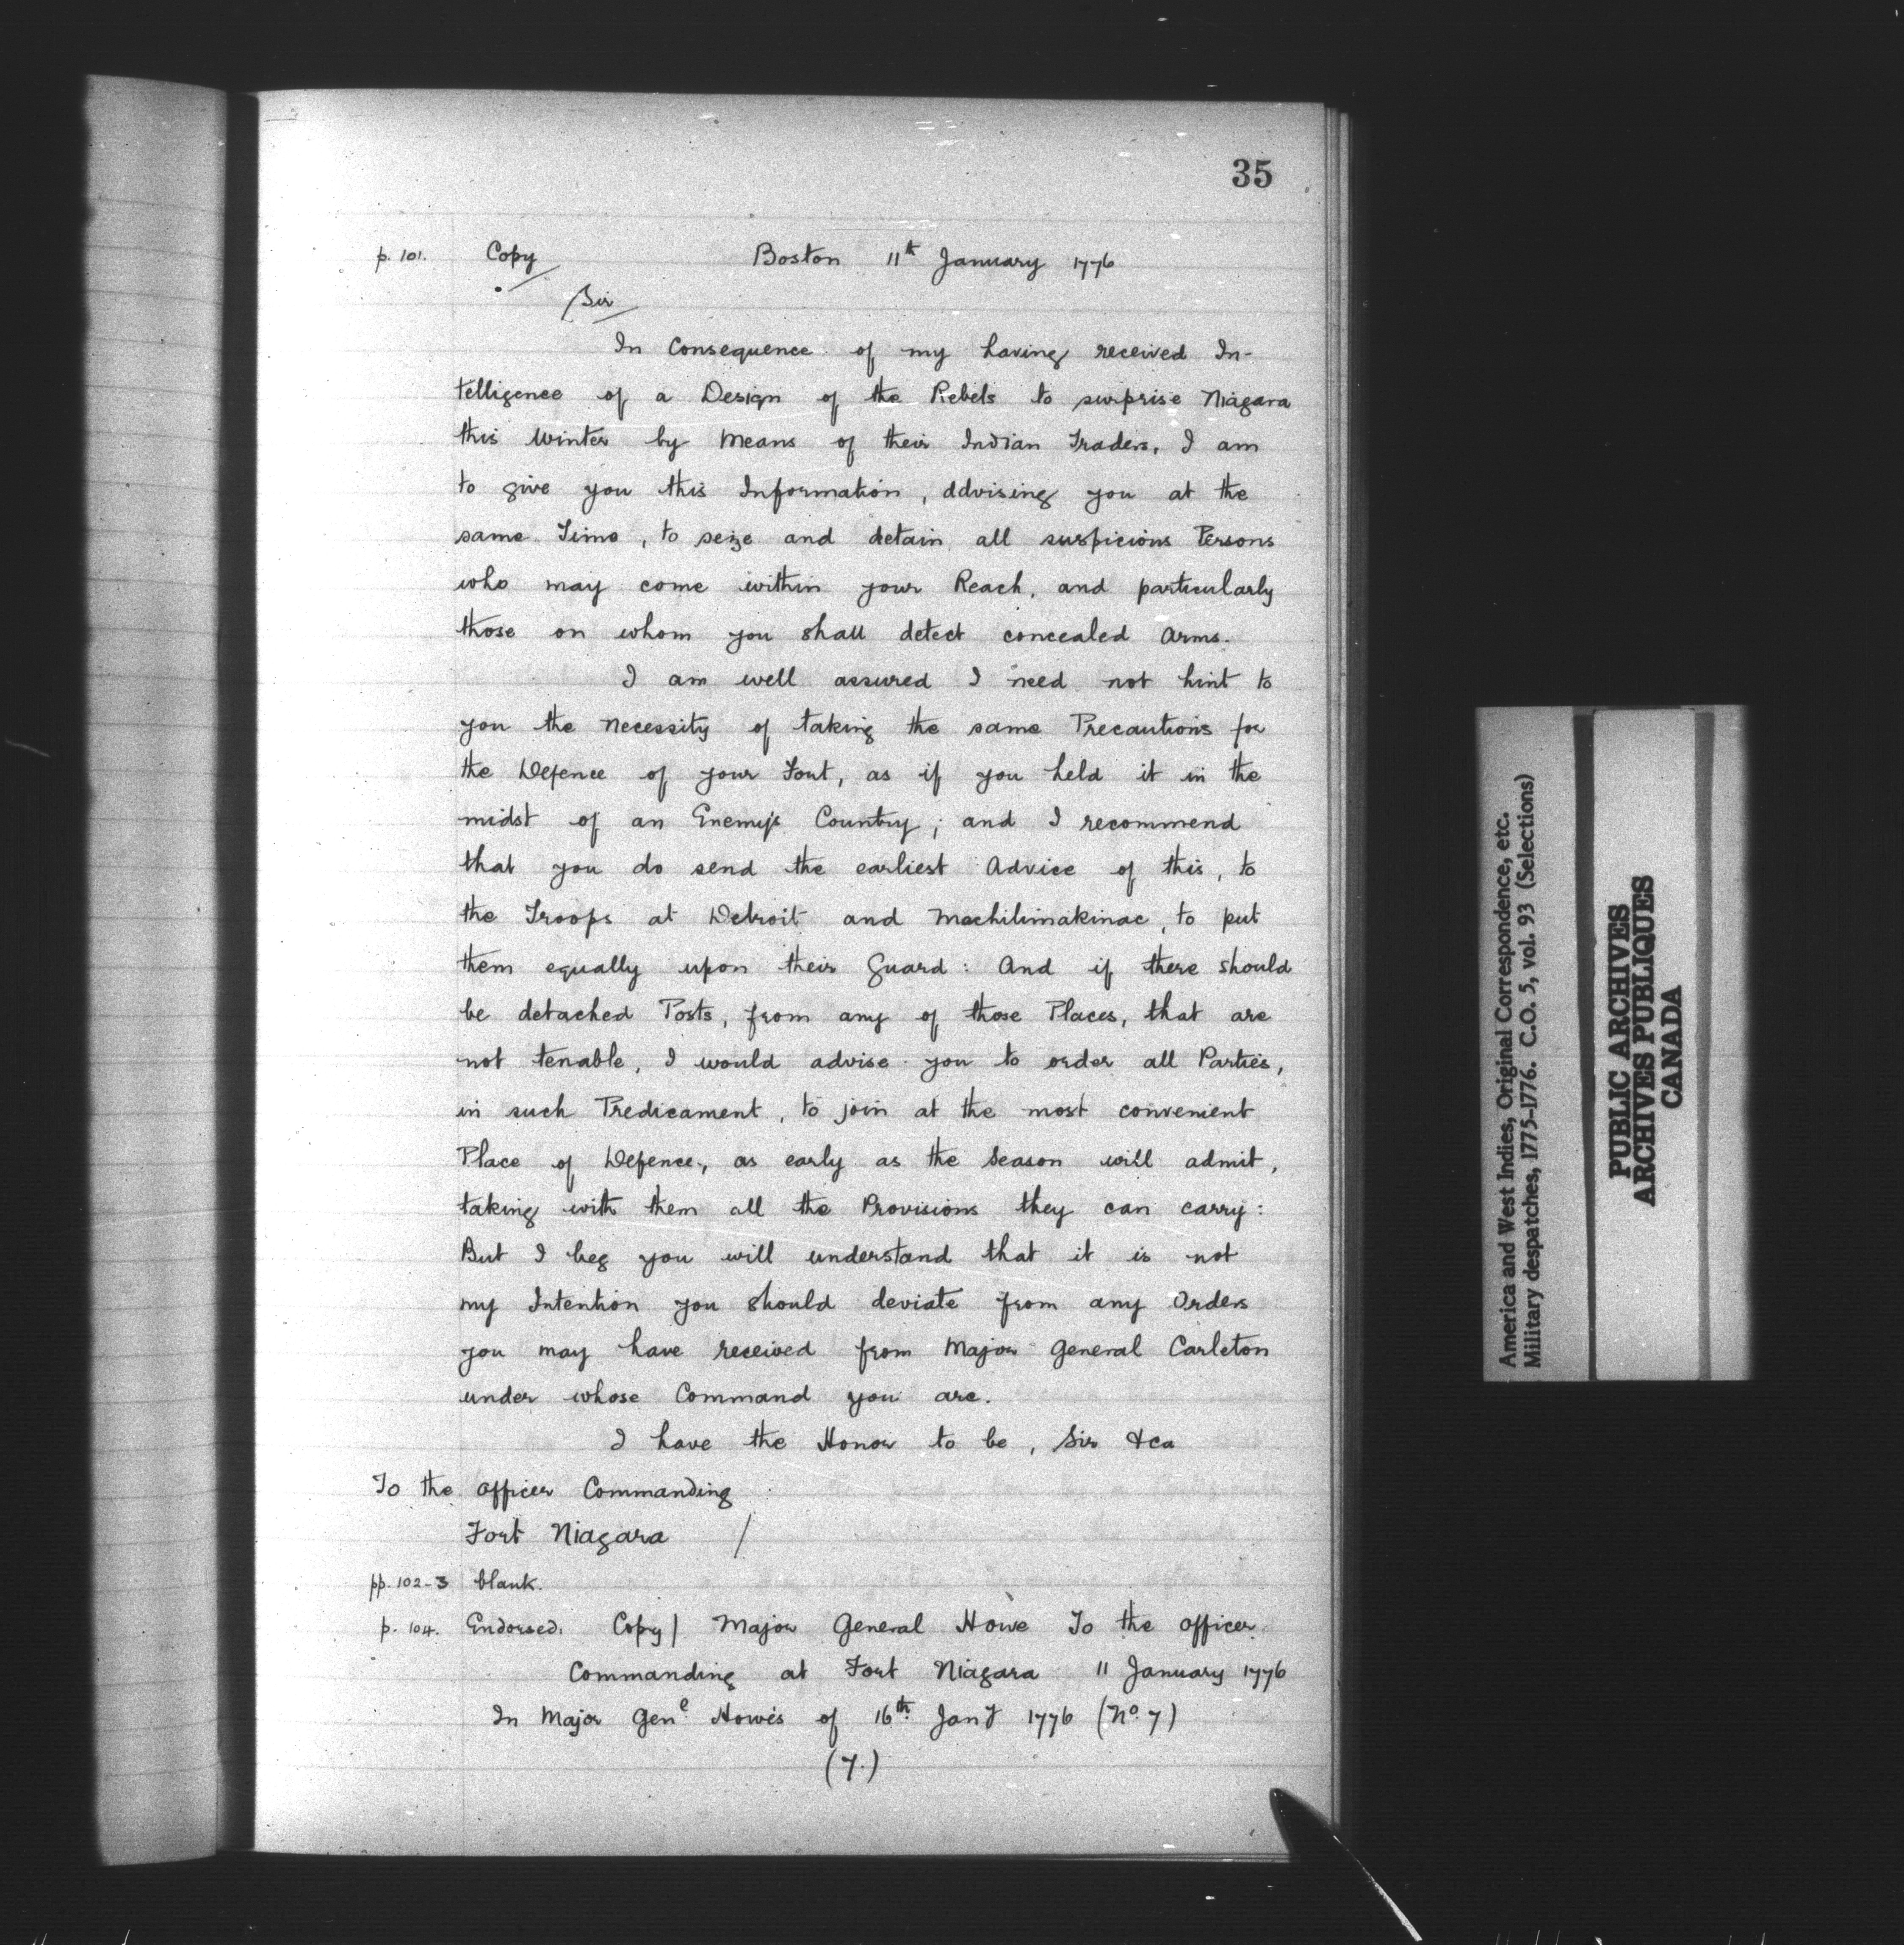 35
p. 101. Copy Boston 11th January 1776
Sir
In Consequence of my having received In-
telligence of a Design of the Rebels to surprise Niagara
this Winter by Means of their Indian Traders, I am
to give you this Information, advising you at the
same Time, to seize and detain all suspicious Persons
who may come within your Reach, and particularly
those on whom you shall detect concealed Arms.
I am well assured I need not hint to
you the Necessity of taking the same Precautions for
the Defence of your Fort, as if you held it in the
midst of an Enemy's Country; and I recommend
that you do send the earliest Advice of this, to
the Troops at Detroit and Machilimakinac, to put
them equally upon their Guard: And if there should
be detached Posts, from any of those Places, that are
not tenable, I would advise you to order all Parties,
in such Predicament, to join at the most convenient
Place of Defence, as early as the Season will admit,
taking with them all the Provisions they can carry:
But I beg you will understand that it is not
my Intention you should deviate from any Orders
you may have received from Major General Carleton
under whose Command you are.
I have the Honor to be, Sir &ca
To the Officer Commanding
Fort Niagara /
pp. 102-3 blank.
p. 104. Endorsed. Copy/ Major General Howe To the Officer
Commanding at Fort Niagara 11 January 1776
In Major Genl Howe's of 16th Jany 1776 (No. 7)
(7.)
America and West Indies, Original Correspondence, etc.
Military despatches, 1775-1776. C.O. 5, vol. 93 (Selections)
PUBLIC ARCHIVES
ARCHIVES PUBLIQUES
CANADA